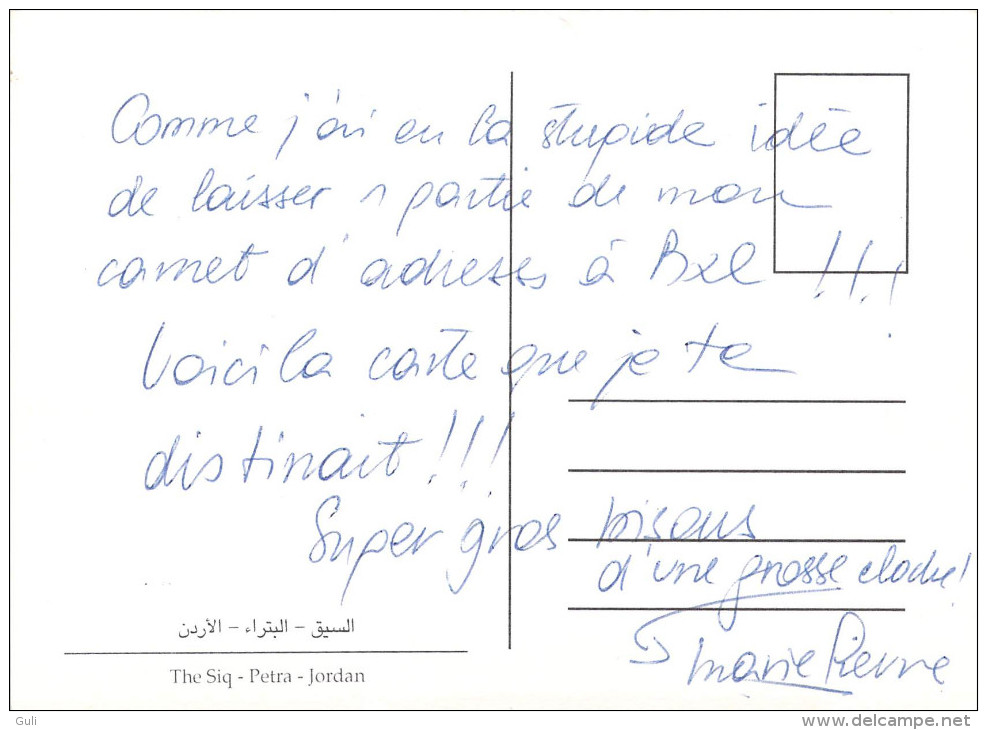 Comme j'ai eu la stupide idée
de laisser 1 partie de mon
carnet d'adresses à Bxl !!!
Voici la carte que je te
distinait !!!
Super gros bisous
d'une grosse cloche !
Marie Pierre
السيق - البتراء - الأردن
The Siq - Petra - Jordan
Guli
www.delcampe.net